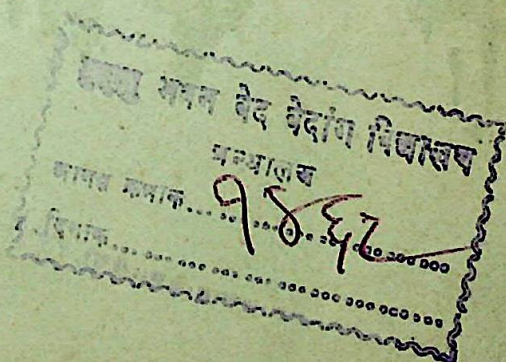 मुमुक्षु भवन वेद वेदांग विद्यालय
ग्रन्थालय
आगत क्रमांक... १४६८ ...
दिनांक...